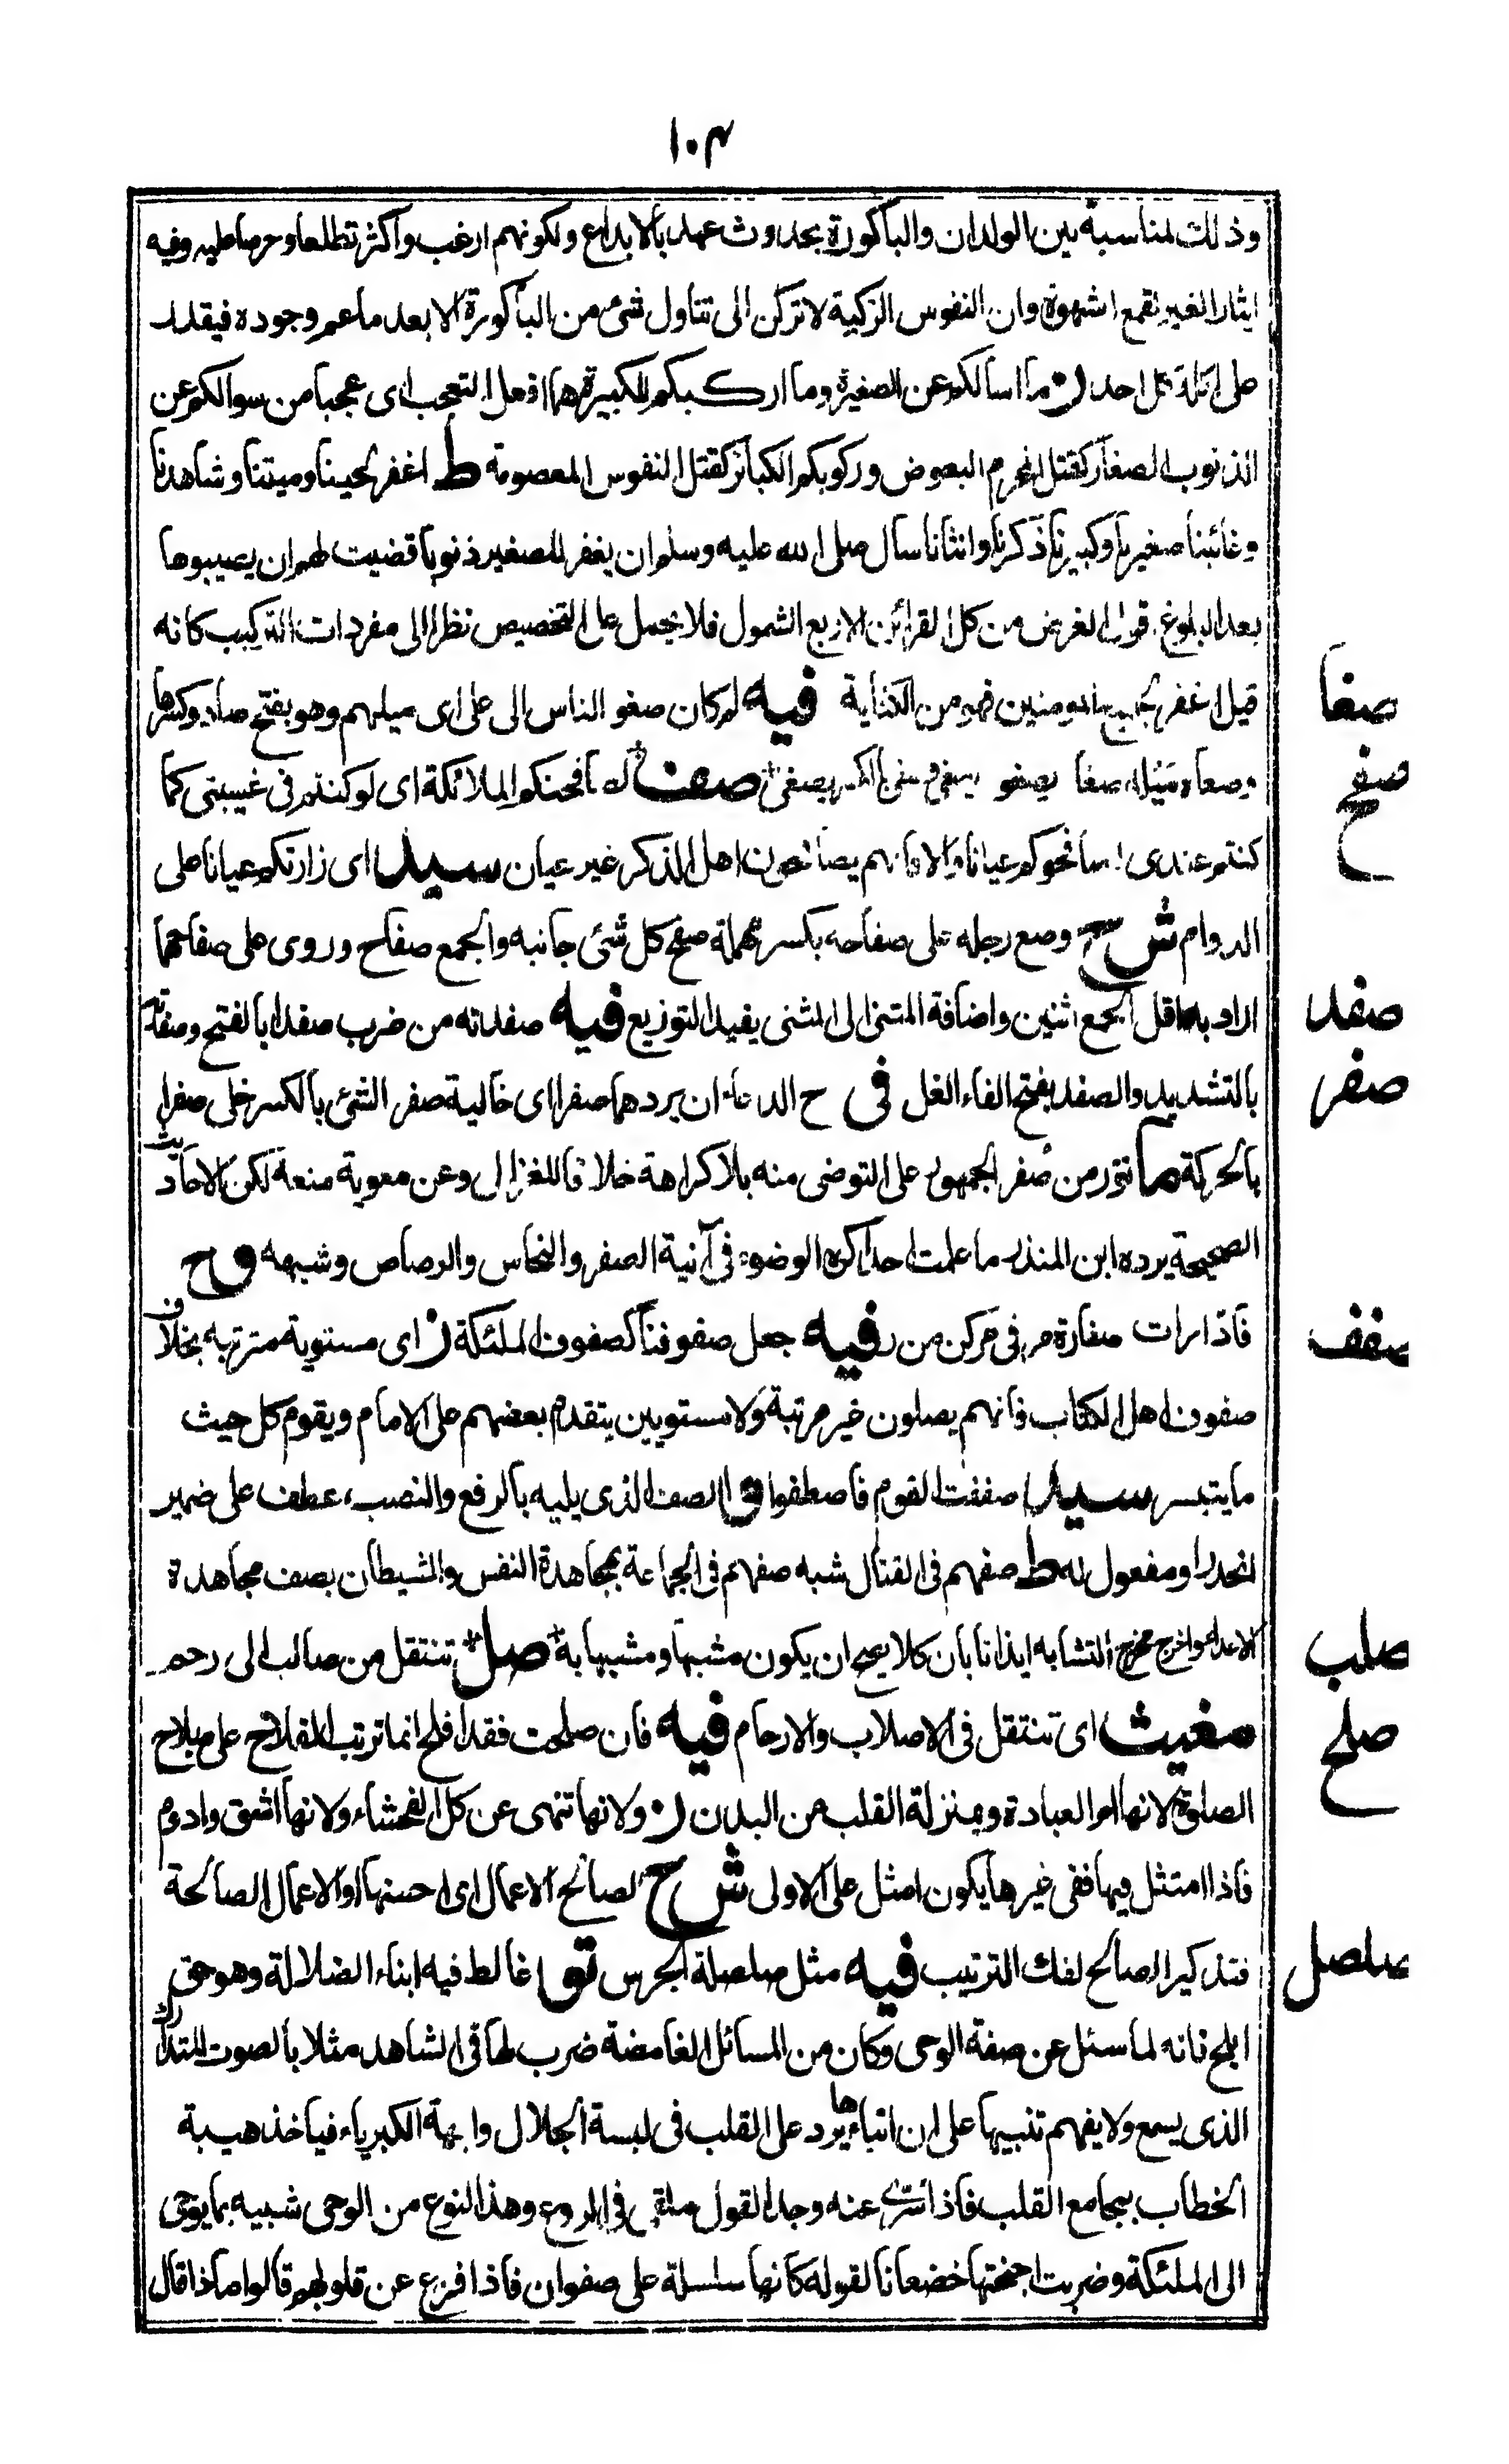 ١٠٣
وذلك لمناسبة بين الولدان والباكورة بحدوث عهد بالابداع ولكونهم ارغب واكثر تطلعا وحرصا عليه وفيه
ايثار الغير لقمع الشهوة وان النفوس الزكية لا تركن الى تناول شئ من الباكورة الا بعد ما عم وجوده فيقدر
على اكله كل احد ن ما اسألكم عن الصغيرة وما اركبكم للكبيرة هما افعل التعجب اى عجبا من سوالكم عن
الذنوب الصغائر كقتل المحرم البعوض وركوبكم الكبائر كقتل النفوس المعصومة ط اغفر لحينا وميتنا وشاهدنا
وغائبنا صغيرنا وكبيرنا ذكرنا وانثانا سأل صلى الله عليه وسلم ان يغفر للصغير ذنوبا قضيت لهم ان يصيبوها
بعد البلوغ قوله الغرض من كل القرائن الاربع الشمول فلا يحمل على التخصيص نظرا الى مفردات التركيب كانه
قيل اغفر لجميع المومنين فهو من الكناية فيه لم كان صغو الناس الى على اى ميلهم وهو بفتح صاد وكسرها
وصغاه مثله صغا يصغو يصغى صغى بالكسر يصغى صف ن لصافحتكم الملائكة اى لو كنتم فى غيبتى كما
كنتم عندى لصافحوكم عيانا والا فانهم يصافحون اهل الذكر غير عيان سيد اى زارتكم عيانا على
الدوام ش ح وضع رجله على صفاحه بكسر مهملة صفح كل شئ جانبه والجمع صفاح وروى على صفاحهما
اراد به اقل الجمع اثنين واضافة المثنى الى المثنى يفيد التوزيع فيه صفدته من ضرب صفدا بالفتح وصفدته
بالتشديد والصفد بفتح الفاء الغل فى ح الدعاء ان يردهما صفرا اى خالية صفر الشئ بالكسر خلى صفرا
بالحركة ما تور من صفر الجمهور على التوضى منه بلا كراهة خلافا للغزالى وعن معوية منعه لكن الاحاديث
الصحيحة يرده ابن المنذر ما علمت احدا كره الوضوء فى آنية الصفر والنحاس والرصاص وشبهه وح
فاذا رات صفارة مر فى مركن من ر فيه جعل صفوفنا كصفوف الملئكة ن اى مستوية مترتبه بخلاف
صفوف اهل الكتاب فانهم يصلون غير مرتبة ولا مستويين يتقدم بعضهم على الامام ويقوم كل حيث
ما يتيسر سيد صففت القوم فاصطفوا وا الصف الذى يليه بالرفع والنصب، عطف على ضمير
انحدر او مفعول له ط صفهم فى القتال شبه صفهم فى الجماعة بمجاهدة النفس والشيطان بصف مجاهدة
الاعداء واخرج مخرج التشابه ايذانا بان كلا يصح ان يكون مشبها ومشبها به صل تنتقل من صالب الى رحم
مغيث اى تنتقل فى الاصلاب والارحام فيه فان صلحت فقد افلح انما ترتب الفلاح على صلاح
الصلوة لانها ام العبادة وبمنزلة القلب من البدن ن ولانها تنهى عن كل الفحشاء ولانها اشق وادوم
فاذا امتثل فيها ففى غيرها يكون امثل على الاولى ش ح لصالح الاعمال اى احسنها او الاعمال الصالحة
فتذكير الصالح لفك الترتيب فيه مثل صلصلة الجرس تو غالط فيه ابناء الضلالة وهو حق
ابلج فانه لما سئل عن صفة الوحى وكان من المسائل الغامضة ضرب لها فى الشاهد مثلا بالصوت المتدارك
الذى يسمع ولا يفهم تنبيها على ان انباءها يرد على القلب فى لبسة الجلال وابهة الكبرياء فياخذ هيبة
الخطاب بمجامع القلب فاذا سرى عنه وجد القول ملقى فى الروع وهذا النوع من الوحى شبيه بما يوحى
الى الملئكة وضربت اجنحتها خضعانا لقوله كانها سلسلة على صفوان فاذا فزع عن قلوبهم قالوا ماذا قال
صغا
صفح
صفد
صفر
صفف
صلب
صلح
صلصل